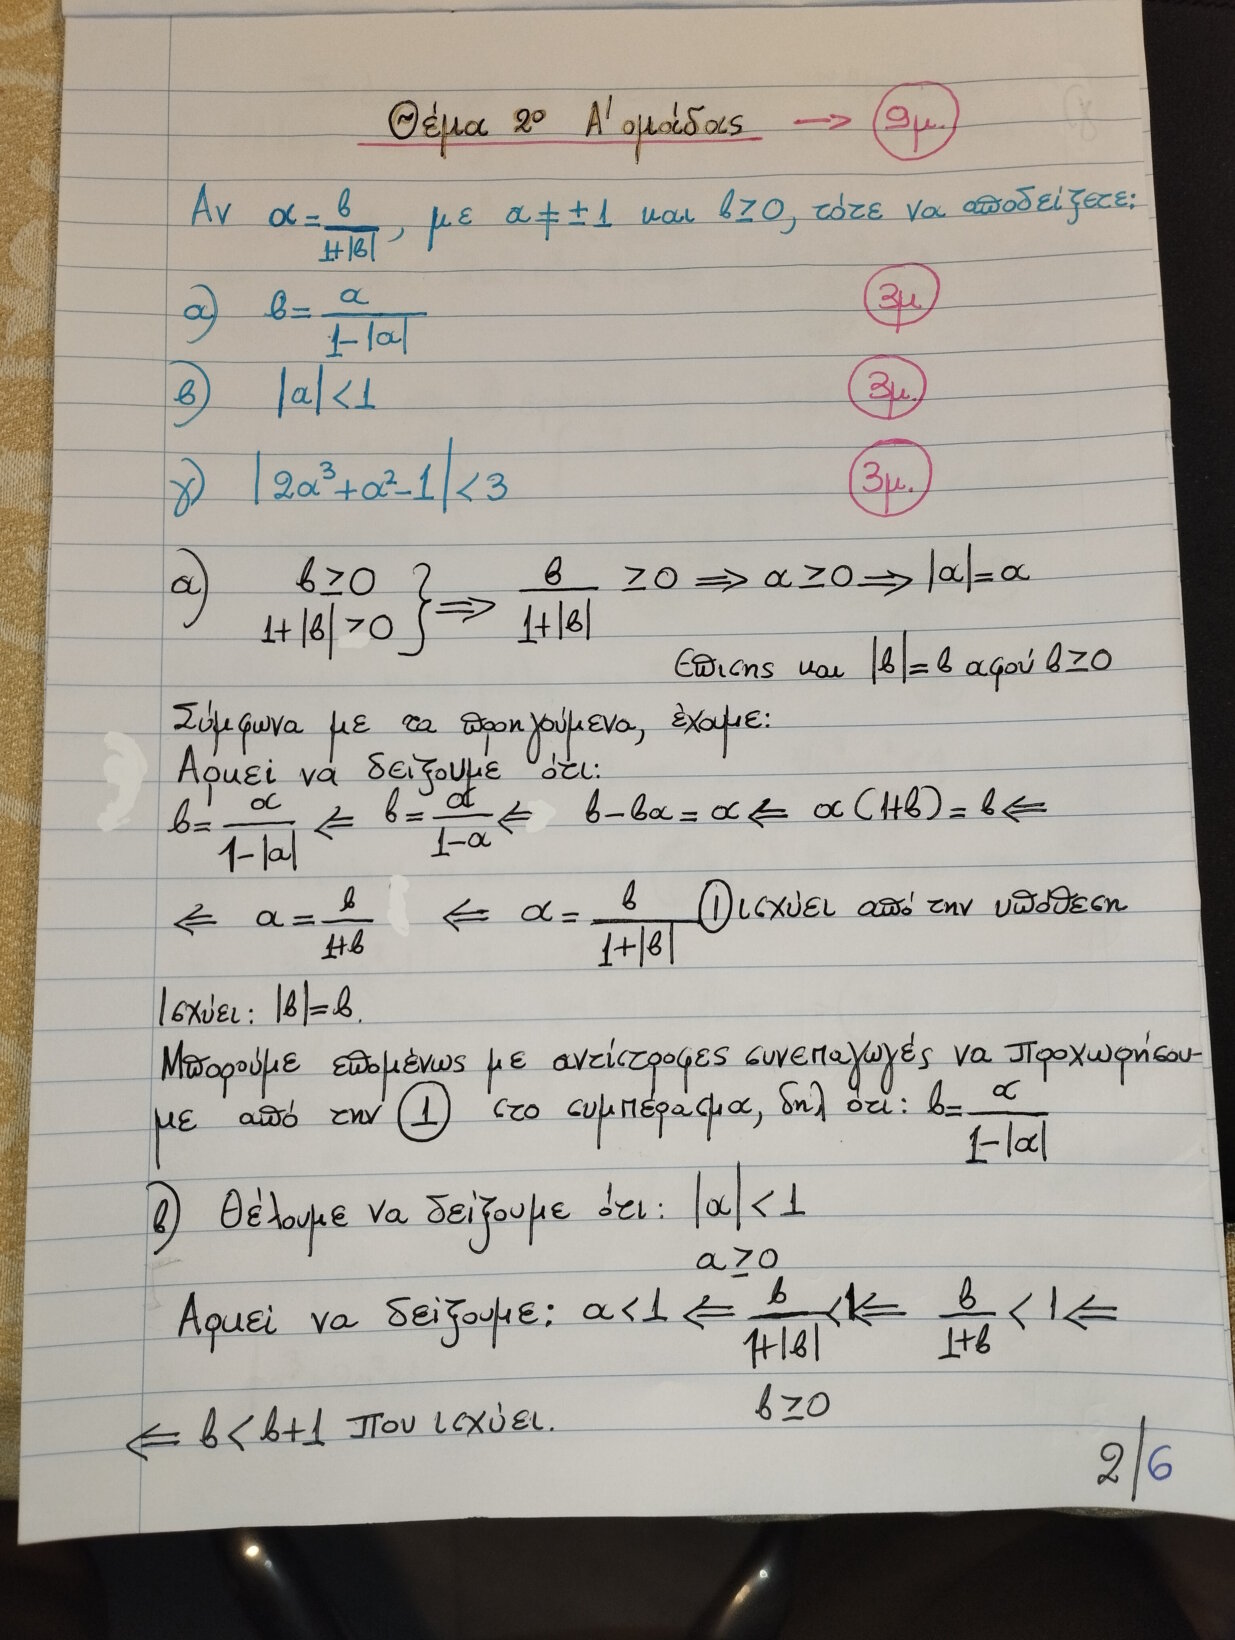 Θέμα 2ο Α' ομάδας → 9μ.
Αν α = β/(1+|β|), με α ≠ ±1 και β ≥ 0, τότε να αποδείξετε:
α) β = α/(1-|α|) 3μ.
β) |α| < 1 3μ.
γ) |2α³+α²-1| < 3 3μ.
α) β ≥ 0
1+|β| > 0 } ⇒ β/(1+|β|) ≥ 0 ⇒ α ≥ 0 ⇒ |α| = α
Επισης και |β| = β αφού β ≥ 0
Σύμφωνα με τα προηγούμενα, έχομε:
Αρκεί να δείξουμε ότι:
β = α/(1-|α|) ⇐ β = α/(1-α) ⇐ β-βα = α ⇐ α(1+β) = β ⇐
⇐ α = β/(1+β) ⇐ α = β/(1+|β|) ① ισχύει από την υπόθεση
Ισχύει: |β| = β.
Μπορούμε επομένως με αντίστροφες συνεπαγωγές να προχωρήσου-
με από την ① στο συμπέρασμα, δηλ ότι: β = α/(1-|α|)
β) Θέλουμε να δείξουμε ότι: |α| < 1
α ≥ 0
Αρκεί να δείξουμε: α < 1 ⇐ β/(1+|β|) < 1 ⇐ β/(1+β) < 1 ⇐
β ≥ 0
⇐ β < β+1 που ισχύει.
2/6